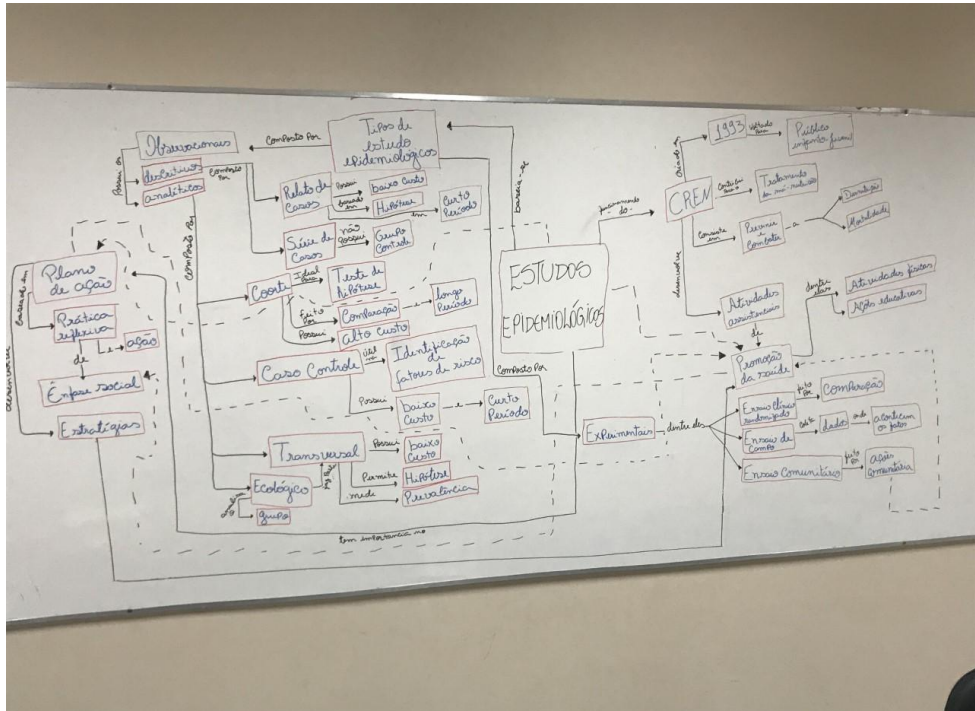 Tipos de
estudo
epidemiológicos
composto por
Observacionais
Possui os
descritivos
analíticos
composto
por
composto por
Relato de
Casos
Possui
baixo custo
baseado
em
Hipótese
em
Curto
Período
Série de
Casos
não
possui
Grupo
Controle
Coorte
Ideal
para
Teste de
hipótese
feito
por
Comparação
e
longo
Período
Possui
alto custo
Caso Controle
útil
na
Identificação
de
fatores de risco
Possui
baixo
Custo
e
Curto
Período
Transversal
Possui
baixo
Custo
Permite
Hipótese
mede
Prevalência
Ecológico
grupo
Plano
de ação
Prática
reflexiva
e
ação
de
Ênfase social
desenvolve
Estratégias
tem importancia no
ESTUDOS
EPIDEMIOLÓGICOS
baseia-se
composto por
Experimentais
dentre eles
Ensaio clínico
randomizado
feito
por
Comparação
Ensaio de
campo
dados
onde
acontecem
os fatos
Ensaio Comunitário
feito
por
Ações
Comunitária
do
CREN
criado em
1993
voltado
para
Público
infanto juvenil
Tratamento
da má-nutrição
consiste
em
Prevenir
e
Combater
a
Desnutrição
Mortalidade
desenvolve
Atividades
assistenciais
de
Promoção
da saúde
dentre
elas
Atividades físicas
Ações educativas